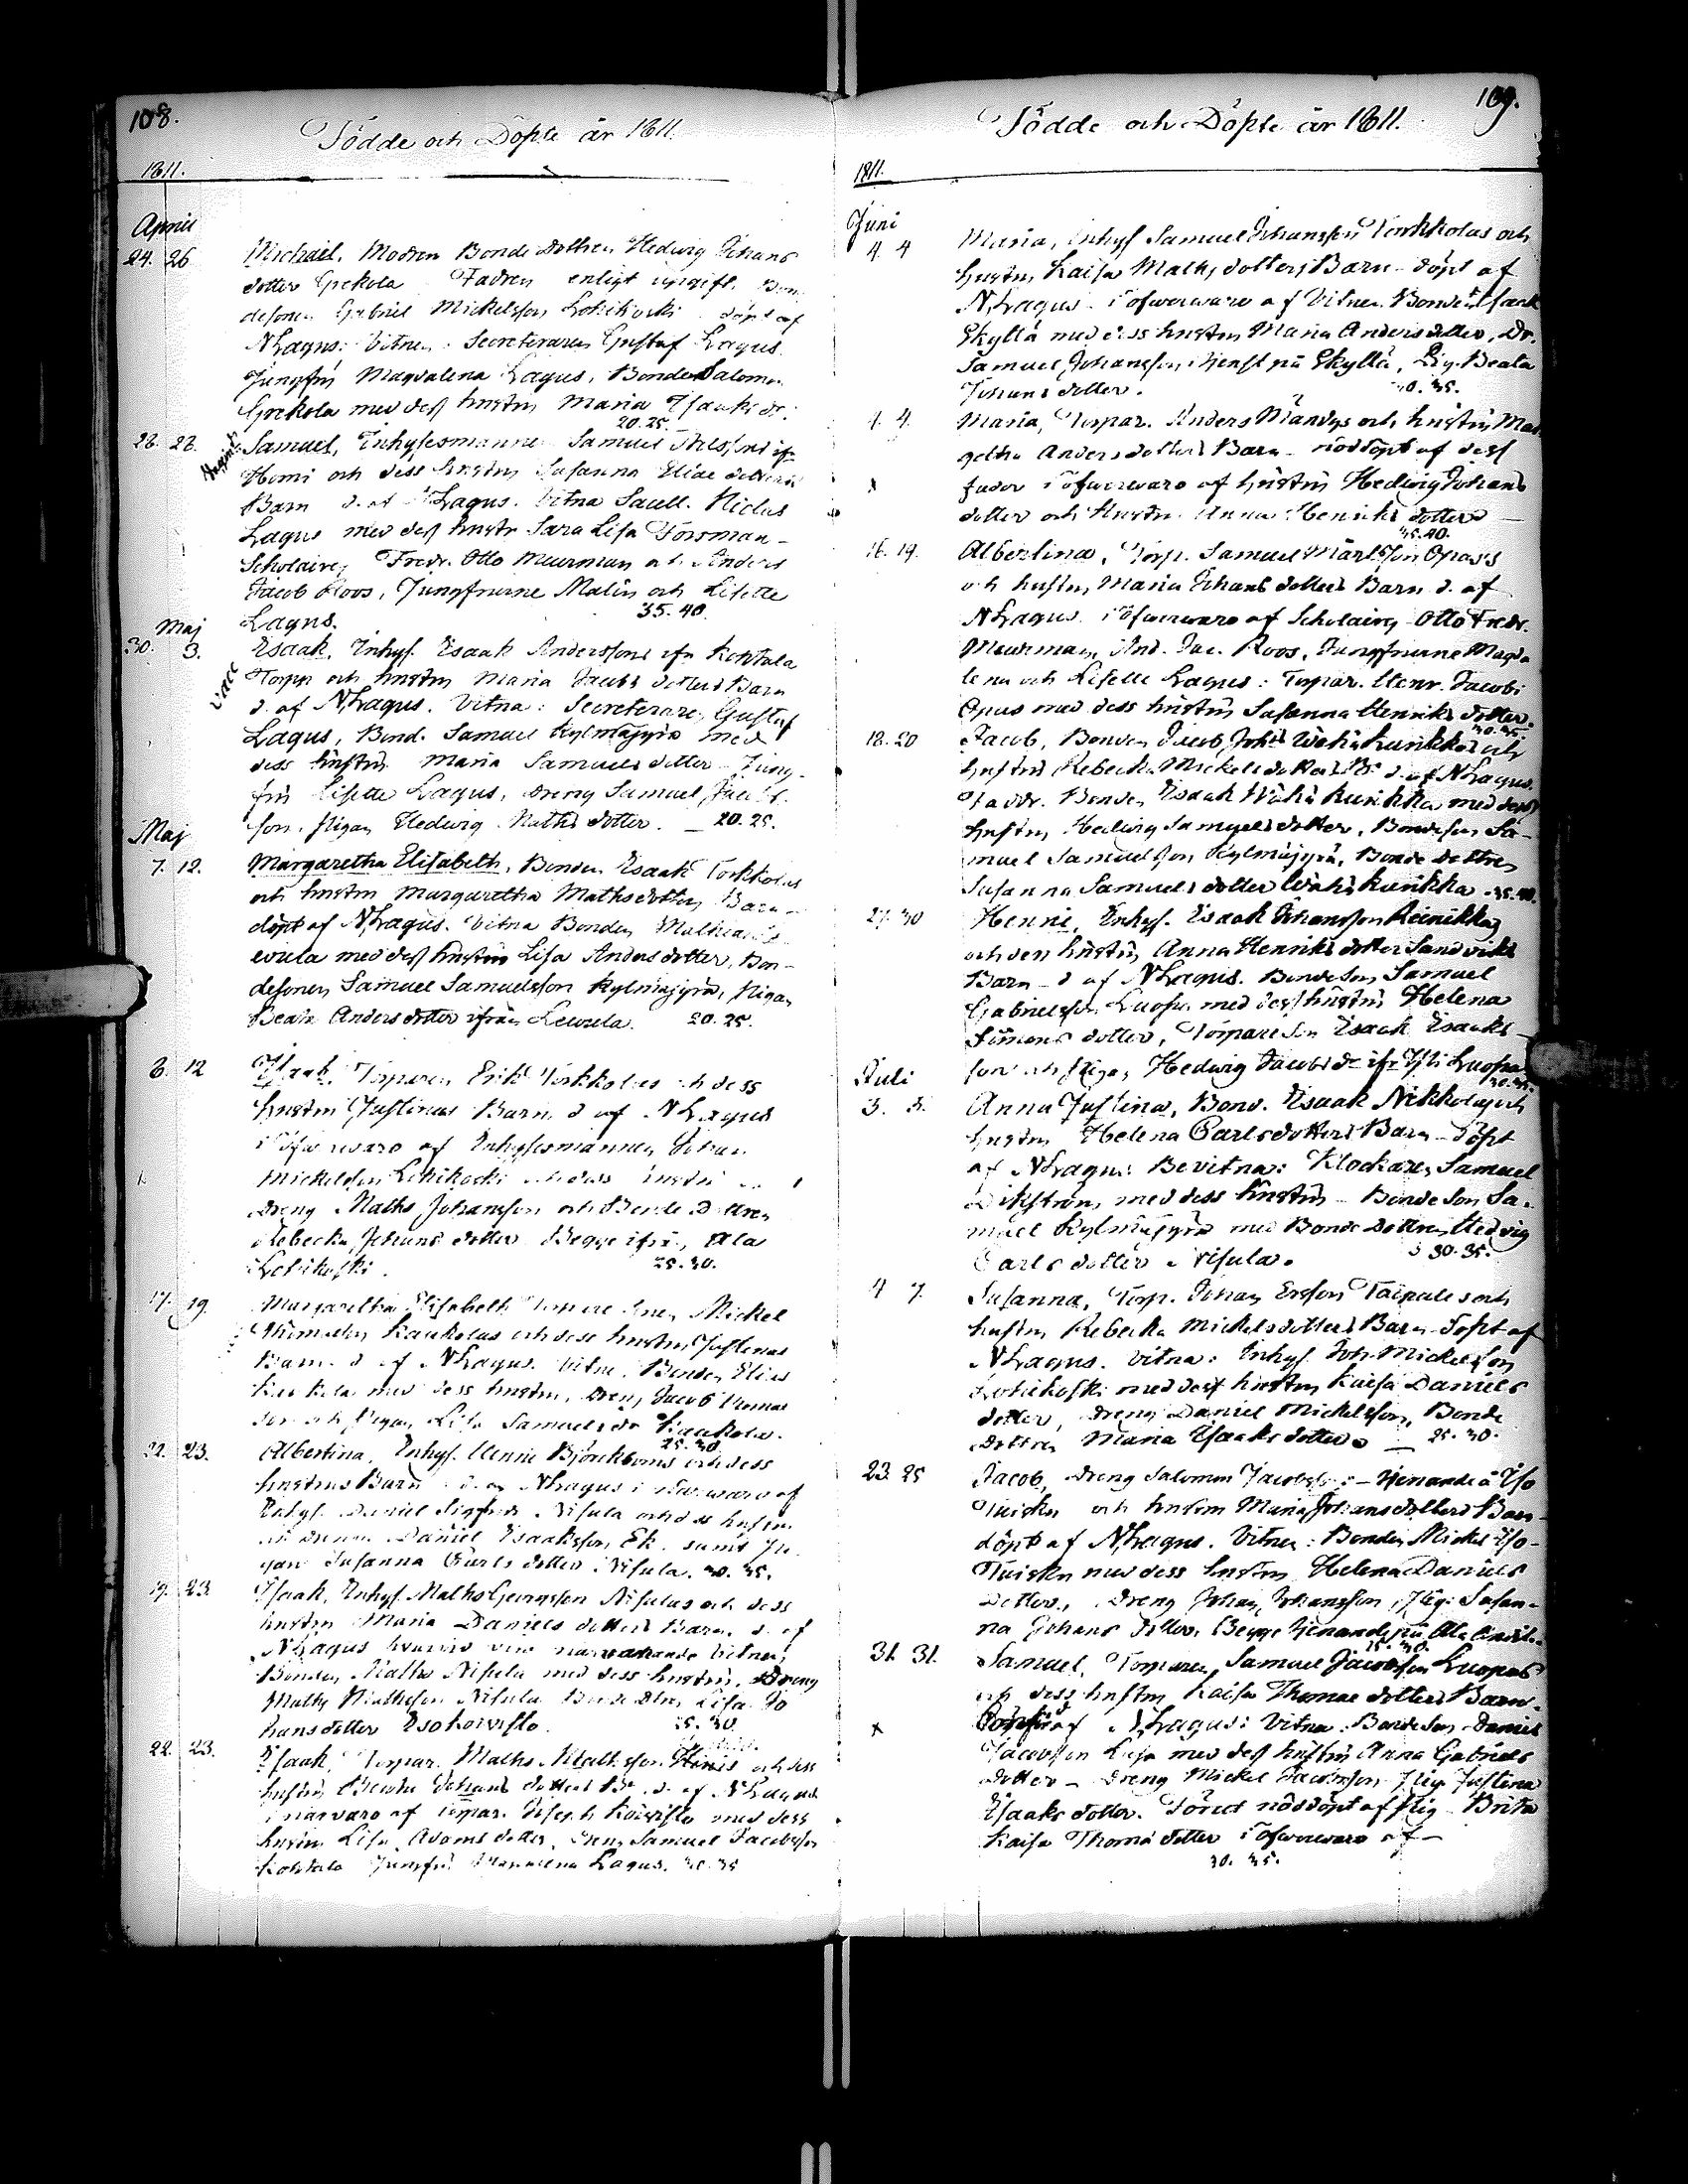 108.
Födde och Döpte år 1811.
1811.
April
24. 26 Michael, Modren Bonde dottren Hedwig Johans
dotter Grekola Fadren enligt upgift. Bon
desonen Gabriel Mickelsson Lohikoski döpt af
N Lagus: Vitnen: Secreteraren Gustaf Lagus
Jungfru Magdalena Lagus, Bonden Salomon
Grekola med dess hustru Maria Isaaks dr:
20.25.
28. 28. Samuel, Inhysesmannen Samuel
och dess hustru Susanna Eliae dotters
Barn d. af N Lagus. Vitna Sacell. Niclas
Lagus med dess hustr Sara Lisa Forsman-
Scholairen Fredr. Otto Meurman och Anders
Jacob Roos, Jungfrurne Malin och Lisette
Lagus. 35.40.
Maj
30. 3. Esaak, Inhys. Esaak Anderssons ifr Kohtala
Torpp och hustru Maria Jacobs dotters Barn
d. af N Lagus. Vitna: Secreteraren Gustaf
Lagus, Bond. Samuel Kylmäjyrä med
dess hustru Maria Samuels dotter - Jung-
fru Lisette Lagus, Dreng Samuel Jacobs
son, Pigan Hedwig Maths dotter. — 20.25.
Maj
7. 12. Margaretha Elisabeth, Bonden Esaak Torkkolas
och hustru Margaretha Mathsdotters Barn
döpt af N Lagus. Vitna Bonden Mathias
med dess hustru Lisa Anders dotter, Bon-
desonen Samuel Samuelsson Kylmäjyrä, Pigan
Beata Anders dotter ifrån Leurula. 20.25.
8. 12 Isaak, Torparen Erik Torkkolas och dess
hustru Justinas Barn d af N Lagus
i öfwerwaro af Inhysesmannen Johan
Mickelsson Lohikoski och dess hustru
Dreng Maths Johansson och Bonde Dottren
Rebecka Johans dotter Begge ifrån Ala
Lohikoski. 25.30.
17. 19. Margaretha Elisabeth Mickel
Kaukolas och dess hustru Justinas
Barn d af N Lagus. Vitne, Bonden Elias
Kaukola med dess hustru, Dreng Jacob Thomas
son och Pigan Lisa Samuels dr Kaukola.
25.30.
22. 23. Albertina, Inhys. Henric Björkboms och dess
hustrus Barn d. af N Lagus i närwaro af
Inhys. Daniel Sigfrids Nisula och dess hustru
Daniel Esaaksson Ek. samt Pi-
gan Susanna Carls dotter Nisula. 30.35.
19. 23. Isaak, Inhys. Maths Georgsson Nisulas och dess
hustru Maria Daniels dotters Barn, d. af
N Lagus hvarvid voro närwarande Vitnen,
Bonden Maths Nisula med dess hustru, Dreng
Maths Mathsson Nisula Bonde Dtren Lisa Jo
hans dotter Isokoivisto. 25.30.
22. 23. Isaak, Torpar. Maths Mathsson och dess
hustru Beata Johans dotters Bn d. af N Lagus
i närvaro af Torpar. Koivisto med dess
hustru Lisa Adams dotter, Dreng Samuel Jacobsson
Kohtala Jungfru Magdalena Lagus. 30.35
109.
Födde och Döpte år 1811.
1811.
Juni
4. 4 Maria, Inhys Samuel Johansson Torkkolas och
hustru Kaisa Maths dotters Barn - döpt af
N Lagus i öfwerwaro af Vitnen Bonden Isaak
Skyttä med dess hustru Maria Anders dotter, Dr.
Samuel Johansson i tjenst på Skyttä, Pig. Beata
Johans dotter. 30.35.
4. 4. Maria, Torpar. Anders Mändys och hustru Mar-
getha Anders dotters Barn - nöddöpt af dess
fader i öfwerwaro af hustru Hedwig Johans
dotter och hustru Anna Henriks dotter —
35.40.
16. 19. Albertina, Torp. Samuel Märtsson Opass
och hustru Maria Johans dotters Barn d. af
N Lagus i öfwerwaro af Scholairen Otto Fredr.
Meurman, And. Jac. Roos, Jungfrurne Magda
lena och Lisette Lagus: Torpar. Henr. Jacobs
Opas med dess hustru Susanna Henriks dotter.
30.35.
18. 20 Jacob, Bonden Jacob Johs Wähäkuikka och
hustru Rebecka Mickels dotters Bn d. af N Lagus.
Faddr. Bonden Esaak Wähä kuikka med dess
hustru Hedwig Samuels dotter, Bondeson Sa-
muel Samuelsson Kylmäjyrä, Bonde Dottren
Susanna Samuels dotter Wähäkuikka. 35.40.
27. 30 Henric, Inhys. Esaak Johansson Reinikka
och dess hustru Anna Henriks dotter Sandviks
Barn d af N Lagus. Bondeson Samuel
Gabrielsson Luopa med dess hustru Helena
Simons dotter, Torpareson Esaak Esaaks-
son och Pigan Hedwig Jacobs dr ifr Yli Luopa
30.35.
Juli
3. 5. Anna Justina, Bond. Esaak Nikkolas och
hustru Helena Carls dotters Barn - Döpt
af N Lagus: Bevitna: Klockaren Samuel
Dikström med dess hustru - Bondeson Sa-
muel Kylmäjyrä med Bonde Dottren Hedvig
Carls dotter Nisula. 30.35.
4 7. Susanna, Torp. Johan Ersson Taipales och
hustru Rebecka Mickelsdotters Barn - Döpt af
N Lagus. Vitna: Inhys. Joh. Mickelsson
Lohikoski med dess hustru Kaisa Daniels
dotter, Dreng Daniel Mickelsson, Bonde
Dottren Maria Isaaks dotter — 25.30.
23. 25 Jacob, Dreng Salomon Jacobsson - tjenande å Iso
Tuisku och hustru Maria Johans dotters Barn-
döpt af N Lagus. Vitna: Bonden Mickel Iso-
Tuisku med dess hustru Helena Daniels
Dotter, Dreng Johan Johansson, Pig. Susan-
na Johans dotter, Begge tjenande på
25.30.
31. 31. Samuel, Torparen, Samuel Jacobsson Luopas
och dess hustru Kaisa Thomae dotters Barn.
af N Lagus: Vitna: Bondeson Daniel
Jacobsson Luopa med dess hustru Anna Gabriels
dotter - Dreng Mickel Jacobsson Pig. Justina
Isaaks dotter. Förut nöddöpt af Pig. Brita
Kaisa Thomä dotter i öfwerwaro af —
30. 35.